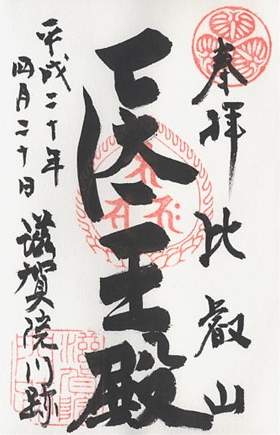 奉拝 比叡山
医王殿
平成二十年
四月二十日
滋賀院門跡